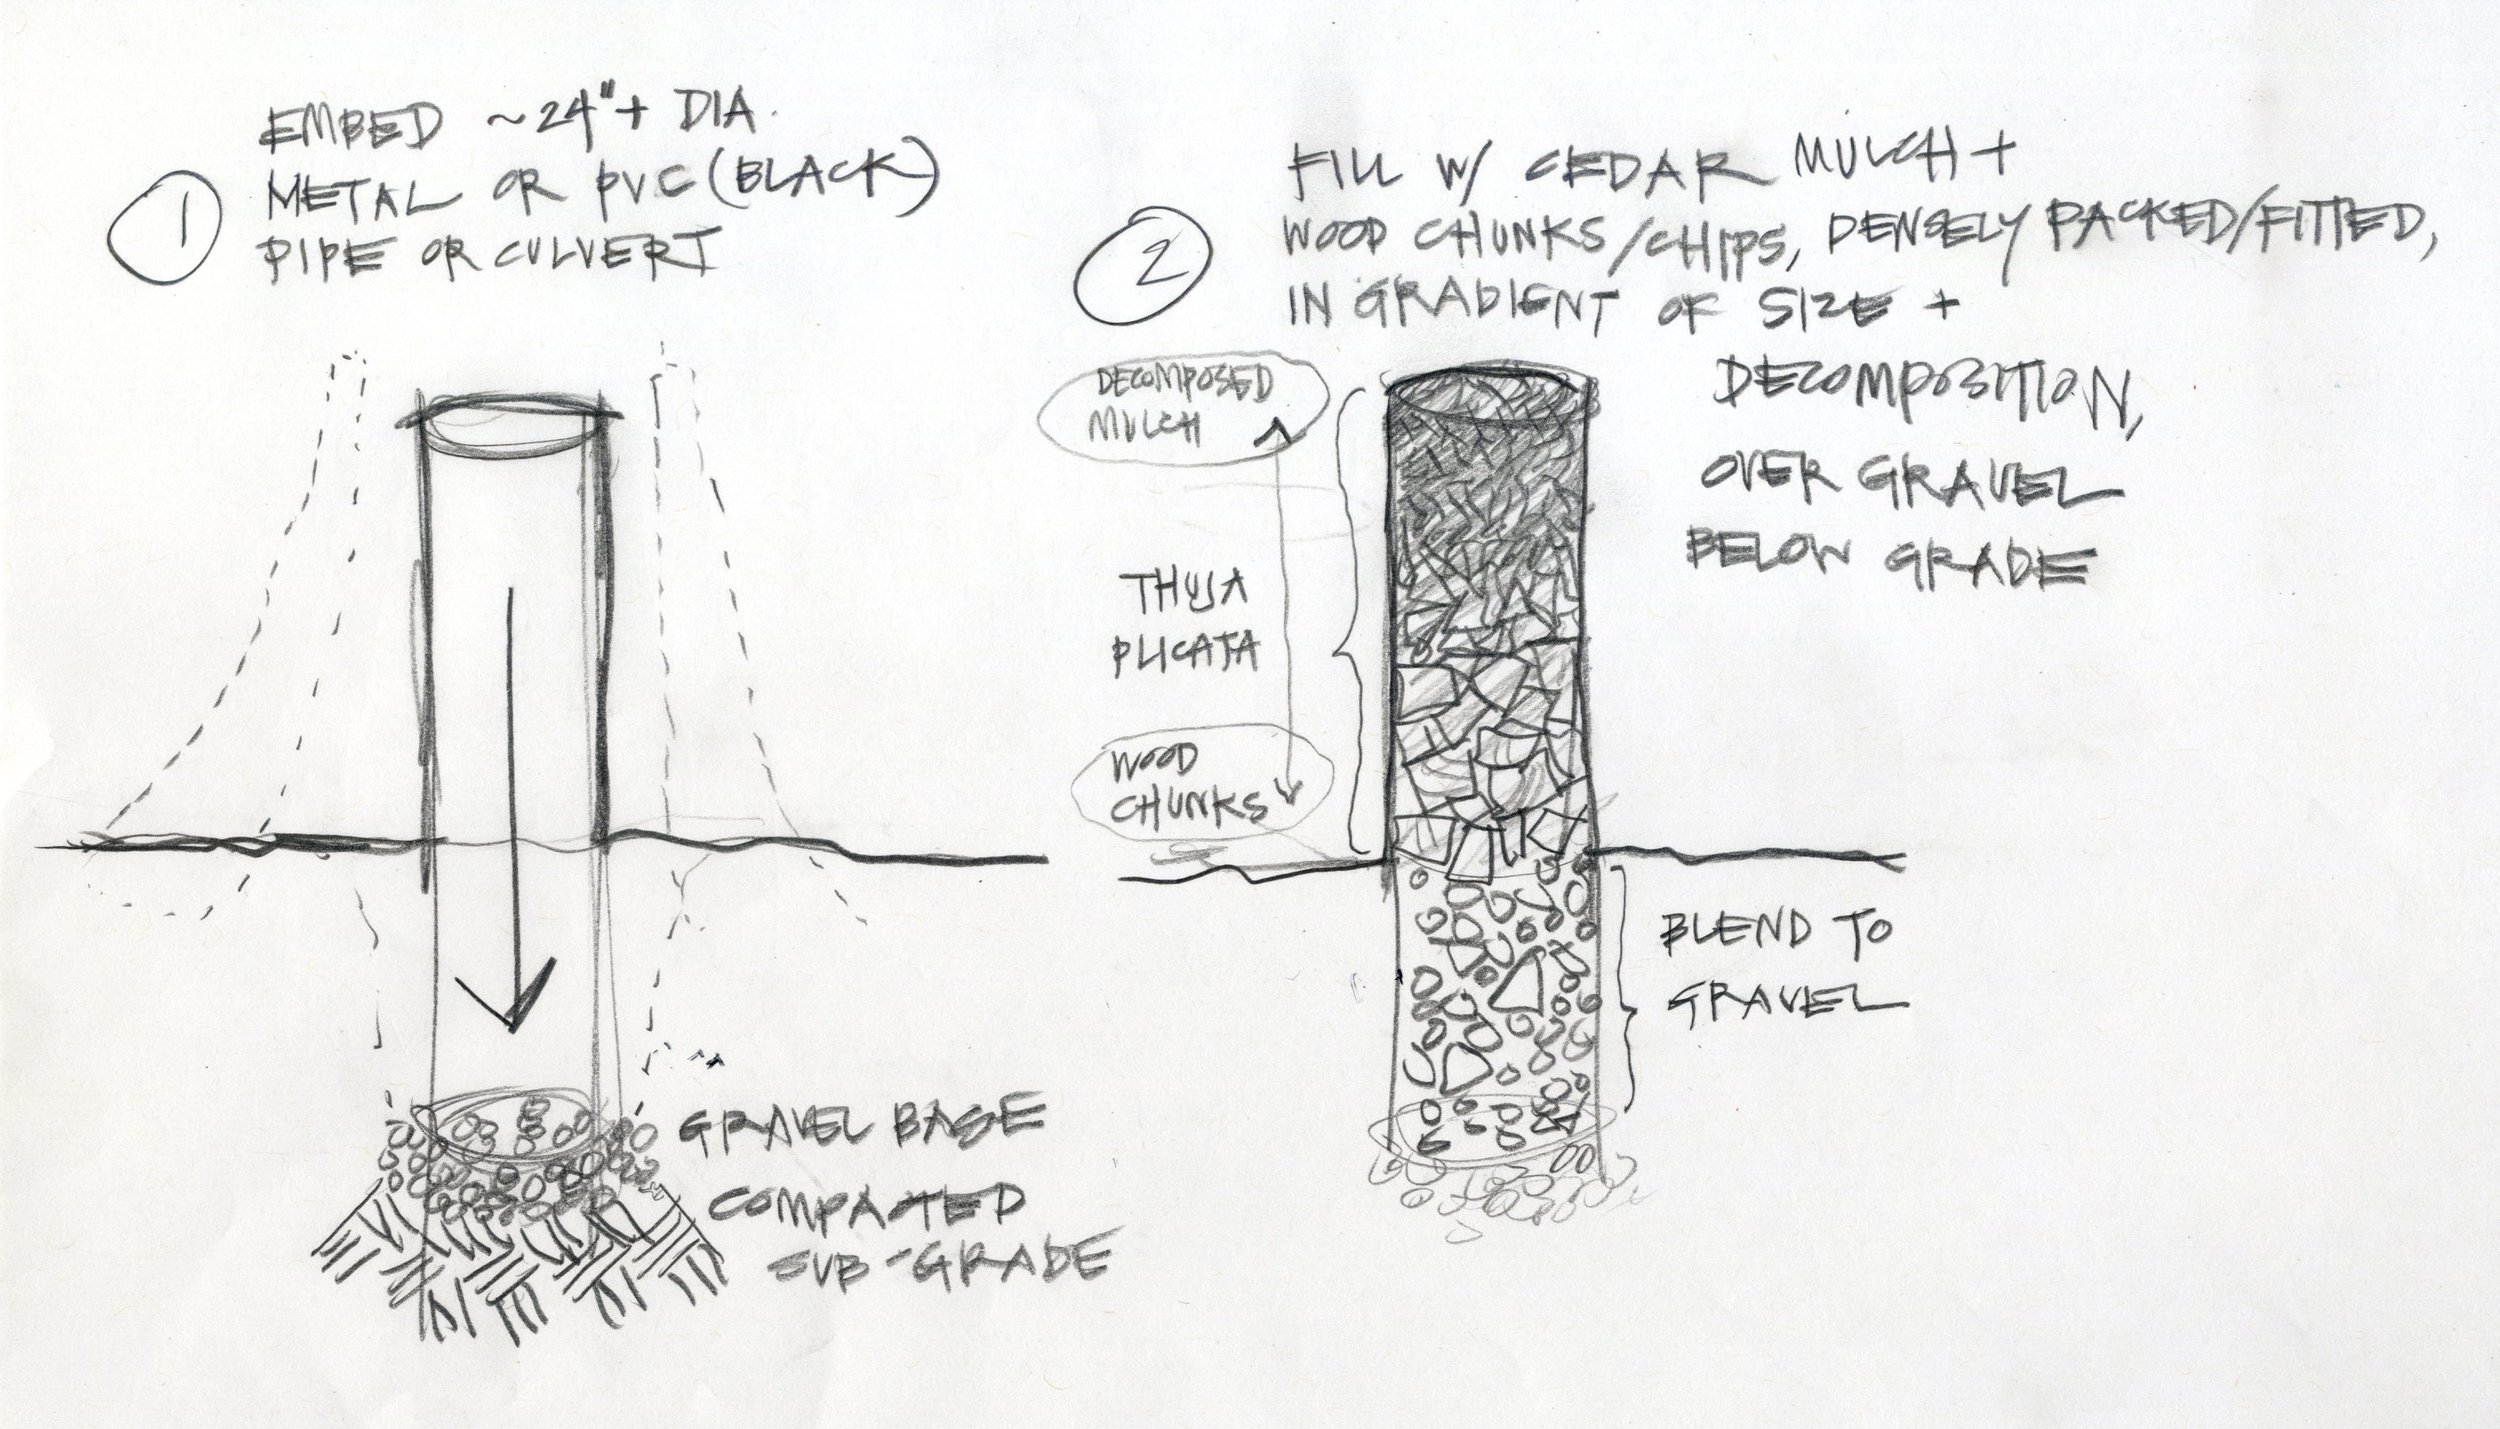 1
EMBED ~24"+ DIA.
METAL OR PVC (BLACK)
PIPE OR CULVERT
GRAVEL BASE
COMPACTED
SUB-GRADE
2
FILL W/ CEDAR MULCH +
WOOD CHUNKS/CHIPS, DENSELY PACKED/FITTED,
IN GRADIENT OF SIZE +
DECOMPOSITION,
OVER GRAVEL
BELOW GRADE
DECOMPOSED
MULCH
THUJA
PLICATA
WOOD
CHUNKS
BLEND TO
GRAVEL